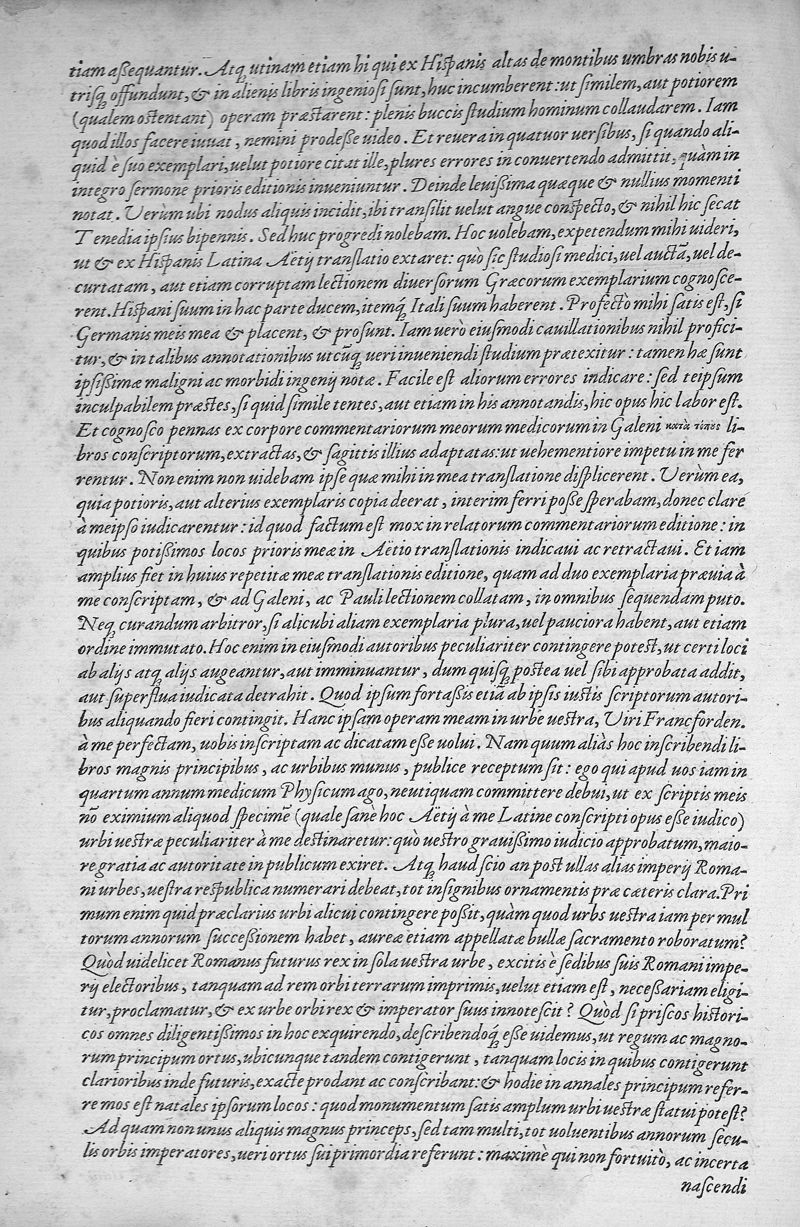 tiam aßequantur. Atq́ utinam etiam hi qui ex Hiſpanis altas de montibus umbras nobis u-
triſq́ offundunt, & in alienis libris ingenioſi ſunt, huc incumberent: ut ſimilem, aut potiorem
(qualem oſtentant) operam præſtarent: plenis buccis ſtudium hominum collaudarem. Iam
quod illos facere iuuat, nemini prodeße uideo. Et reuera in quatuor uerſibus, ſi quando ali-
quid è ſuo exemplari, uelut potiore citat ille, plures errores in conuertendo admittit, quàm in
integro ſermone prioris editionis inueniuntur. Deinde leuißima quæque & nullius momenti
notat. Verùm ubi nodus aliquis incidit, ibi tranſilit uelut angue conſpecto, & nihil hic ſecat
Tenedia ipſius bipennis. Sed huc progredi nolebam. Hoc uolebam, expetendum mihi uideri,
ut & ex Hiſpanis Latina Aëtij tranſlatio extaret: quò ſic ſtudioſi medici, uel auctã, uel de-
curtatam, aut etiam corruptam lectionem diuerſorum Græcorum exemplarium cognoſce-
rent. Hiſpani ſuum in hac parte ducem, itemq́ Itali ſuum haberent. Profectò mihi ſatis eſt, ſi
Germanis meis mea & placent, & proſunt. Iam uerò eiuſmodi cauillationibus nihil profici-
tur, & in talibus annotationibus utcũq́ ueri inueniendi ſtudium prætexitur: tamen hæ ſunt
ipſißimæ maligni ac morbidi ingenij notæ. Facile eſt aliorum errores indicare: ſed teipſum
inculpabilem præſtes, ſi quid ſimile tentes, aut etiam in his annotandis, hic opus hic labor eſt.
Et cognoſco pennas ex corpore commentariorum meorum medicorum in Galeni κατὰ τόπους li-
bros conſcriptorum, extractas, & ſagittis illius adaptatas: ut uehementiore impetu in me fer
rentur. Non enim non uidebam ipſe quæ mihi in mea tranſlatione diſplicerent. Verùm ea,
quia potioris, aut alterius exemplaris copia deerat, interim ferri poße ſperabam, donec clarè
à meipſo iudicarentur: id quod factum eſt mox in relatorum commentariorum editione: in
quibus potißimos locos prioris meæ in Aëtio tranſlationis indicaui ac retractaui. Et iam
amplius fiet in huius repetitæ meæ tranſlationis editione, quam ad duo exemplaria præuia à
me conſcriptam, & ad Galeni, ac Pauli lectionem collatam, in omnibus ſequendam puto.
Neq́ curandum arbitror, ſi alicubi aliam exemplaria plura, uel pauciora habent, aut etiam
ordine immutato. Hoc enim in eiuſmodi autoribus peculiariter contingere poteſt, ut certi loci
ab alijs atq́ alijs augeantur, aut imminuantur, dum quiſq́ poſtea uel ſibi approbata addit,
aut ſuperflua iudicata detrahit. Quod ipſum fortaßis etiã ab ipſis iuſtis ſcriptorum autori-
bus aliquando fieri contingit. Hanc ipſam operam meam in urbe ueſtra, Viri Francforden.
à me perfectam, uobis inſcriptam ac dicatam eße uolui. Nam quum aliàs hoc inſcribendi li-
bros magnis principibus, ac urbibus munus, publice receptum ſit: ego qui apud uos iam in
quartum annum medicum Phyſicum ago, neutiquam committere debui, ut ex ſcriptis meis
nõ eximium aliquod ſpecimẽ (quale ſane hoc Aëtij à me Latine conſcripti opus eße iudico)
urbi ueſtræ peculiariter à me deſtinaretur: quò ueſtro grauißimo iudicio approbatum, maio-
re gratia ac autoritate in publicum exiret. Atq́ haud ſcio an poſt ullas alias imperij Roma-
ni urbes, ueſtra reſpublica numerari debeat, tot inſignibus ornamentis præ cæteris clara. Pri
mum enim quid præclarius urbi alicui contingere poßit, quàm quod urbs ueſtra iam per mul
torum annorum ſucceßionem habet, aureæ etiam appellatæ bullæ ſacramento roboratum?
Quòd uidelicet Romanus futurus rex in ſola ueſtra urbe, excitis è ſedibus ſuis Romani impe-
rij electoribus, tanquam ad rem orbi terrarum imprimis, ueluti etiam eſt, neceßariam eligi-
tur, proclamatur, & ex urbe orbi rex & imperator ſuus innoteſcit? Quòd ſi priſcos hiſtori-
cos omnes diligentißimos in hoc exquirendo, deſcribendoq́ eße uidemus, ut regum ac magno-
rum principum ortus, ubicunque tandem contigerunt, tanquam locis in quibus contigerunt
clarioribus inde futuris, exacte prodant ac conſcribant: & hodie in annales principum refer-
re mos eſt natales ipſorum locos: quod monumentum ſatis amplum urbi ueſtræ ſtatui poteſt?
Ad quam non unus aliquis magnus princeps, ſed tam multi, tot uoluentibus annorum ſecu-
lis orbis imperatores, ueri ortus ſui primordia referunt: maximè qui non fortuitò, ac incerta
naſcendi